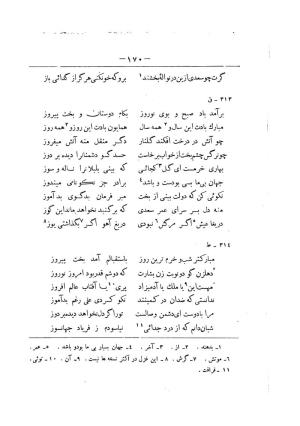 — ۱۷۰ —
گرت چو سعدی ازین در نواله بخشند۱ برو که خو نکنی هرگز از گدائی باز
۳۱۳ - ق
برآمد باد صبح و بوی نوروز بکام دوستان و بخت پیروز
مبارک بادت این سال و۲ همه سال همایون بادت این روز۳ همه روز
چو آتش در درخت افکند گلنار دگر منقل منه آتش میفروز
چو نرگس چشم بخت از خواب برخاست حسد گو دشمنانرا دیده بردوز
بهاری خرمست ای گل کجائی که بینی بلبلانرا ناله و سوز
جهان بی ما بسی بودست و باشد۴ برادر جز نکونامی میندوز
نکوئی کن که دولت بینی از بخت مبر فرمان بدگوی بدآموز
منه دل بر سرای عمر سعدی که بر گنبد نخواهد ماند این کوز
دریغا عیش۵ اگر مرگش۷ نبودی دریغ آهو اگر بگذاشتی یوز
۳۱۴ - ط
مبارکتر شب و خرم ترین روز باستقبالم آمد بخت پیروز
دهلزن گو دو نوبت زن بشارت که دوشم قدر بود امروز نوروز
مهست این یا ملک یا آدمیزاد پری یا آفتاب عالم افروز
ندانستی که ضدان در کمینند نکو کردی علی رغم بدآموز
مرا با دوست ای دشمن وصالست ترا گر دل نخواهد دیده بردوز
شبان دانم که از درد جدائی۱۱ نیاسودم ز فریاد جهانسوز
۱- بدهنه. ۲- از. ۳- آخر. ۴- جهان بسیار بی ما بودو باشد. ۵- عمر.
۶- مونش. ۷- گرش. ۸- این غزل در اکثر نسخه ها نیست. ۹- آن. ۱۰- توئی.
۱۱- فراقت.